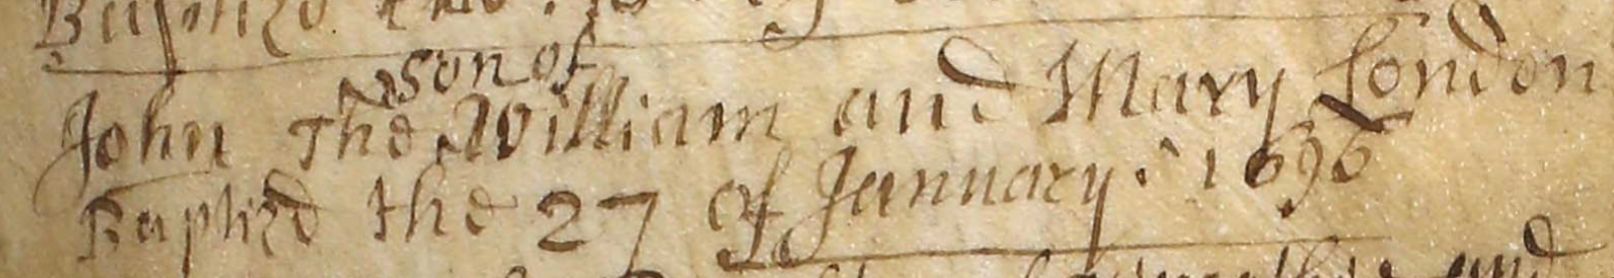 Baptized the
son of
John The William and Mary London
Baptizd the 27 of January : 1696
and